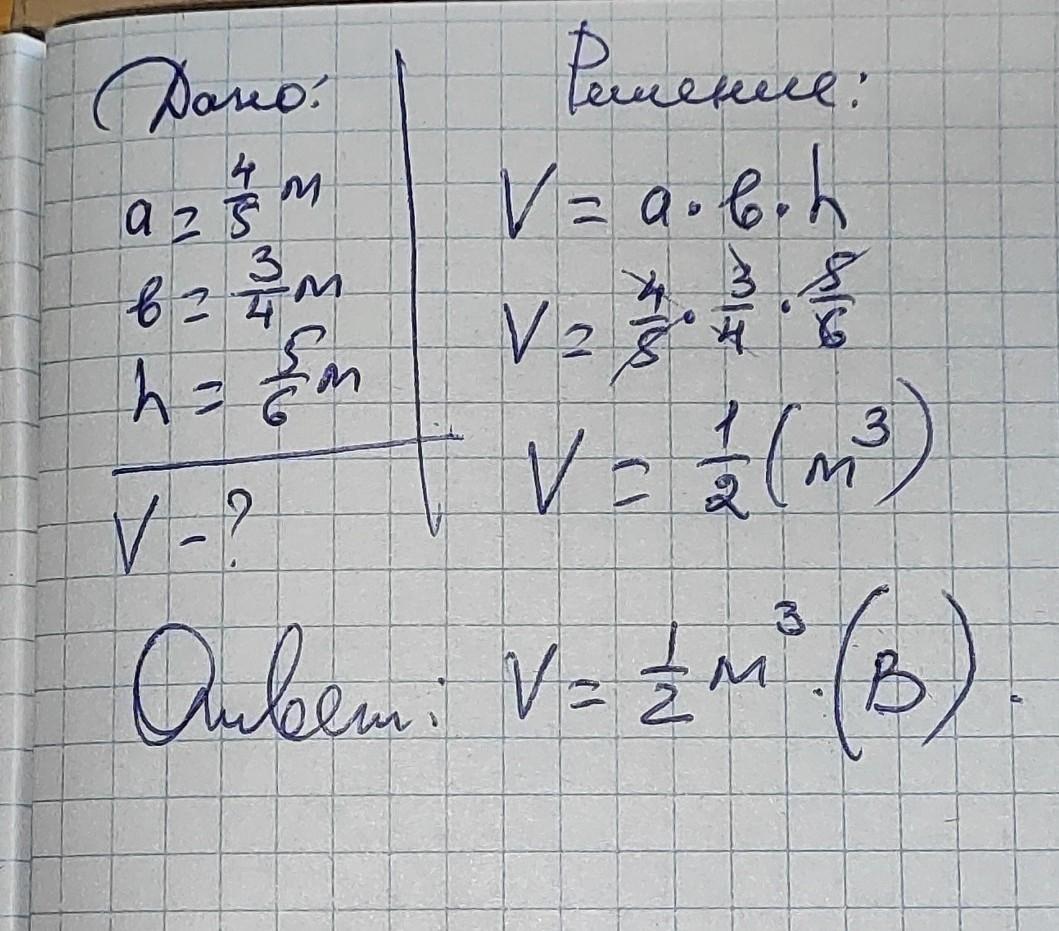 Дано:
a = 4/5 м
в = 3/4 м
h = 5/6 м
V - ?
Решение:
V = a · в · h
V = 4/5 · 3/4 · 5/6
V = 1/2 (м³)
Ответ: V = 1/2 м³. (В).